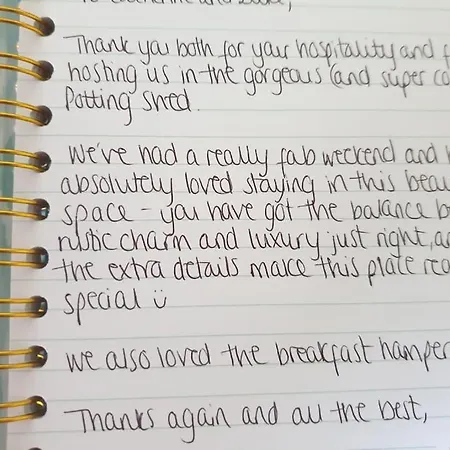 Thank you both for your hospitality and
hosting us in the gorgeous (and super
Potting Shed.
We've had a really fab weekend and
absolutely loved staying in this
space - you have got the balance
rustic charm and luxury just right,
the extra details make this place
special ü
we also loved the breakfast hamper
Thanks again and all the best,